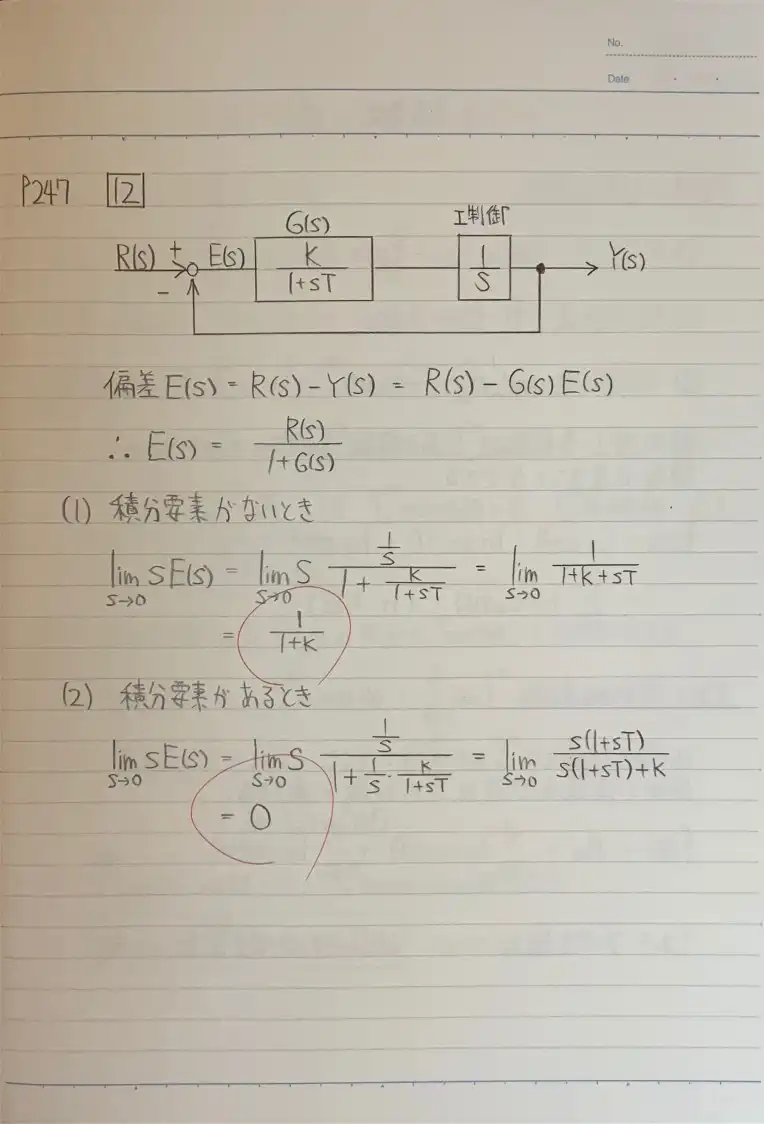 No.
Date
P247 12
G(s) I制御
R(s) + E(s) K/(1+sT) 1/s Y(s)
−
偏差 E(s) = R(s) − Y(s) = R(s) − G(s)E(s)
∴ E(s) = R(s)/(1+G(s))
(1) 積分要素がないとき
lim_{s→0} sE(s) = lim_{s→0} s (1/s)/(1 + K/(1+sT)) = lim_{s→0} 1/(1+K+sT)
= 1/(1+K)
(2) 積分要素があるとき
lim_{s→0} sE(s) = lim_{s→0} s (1/s)/(1 + 1/s · K/(1+sT)) = lim_{s→0} s(1+sT)/(s(1+sT)+K)
= 0